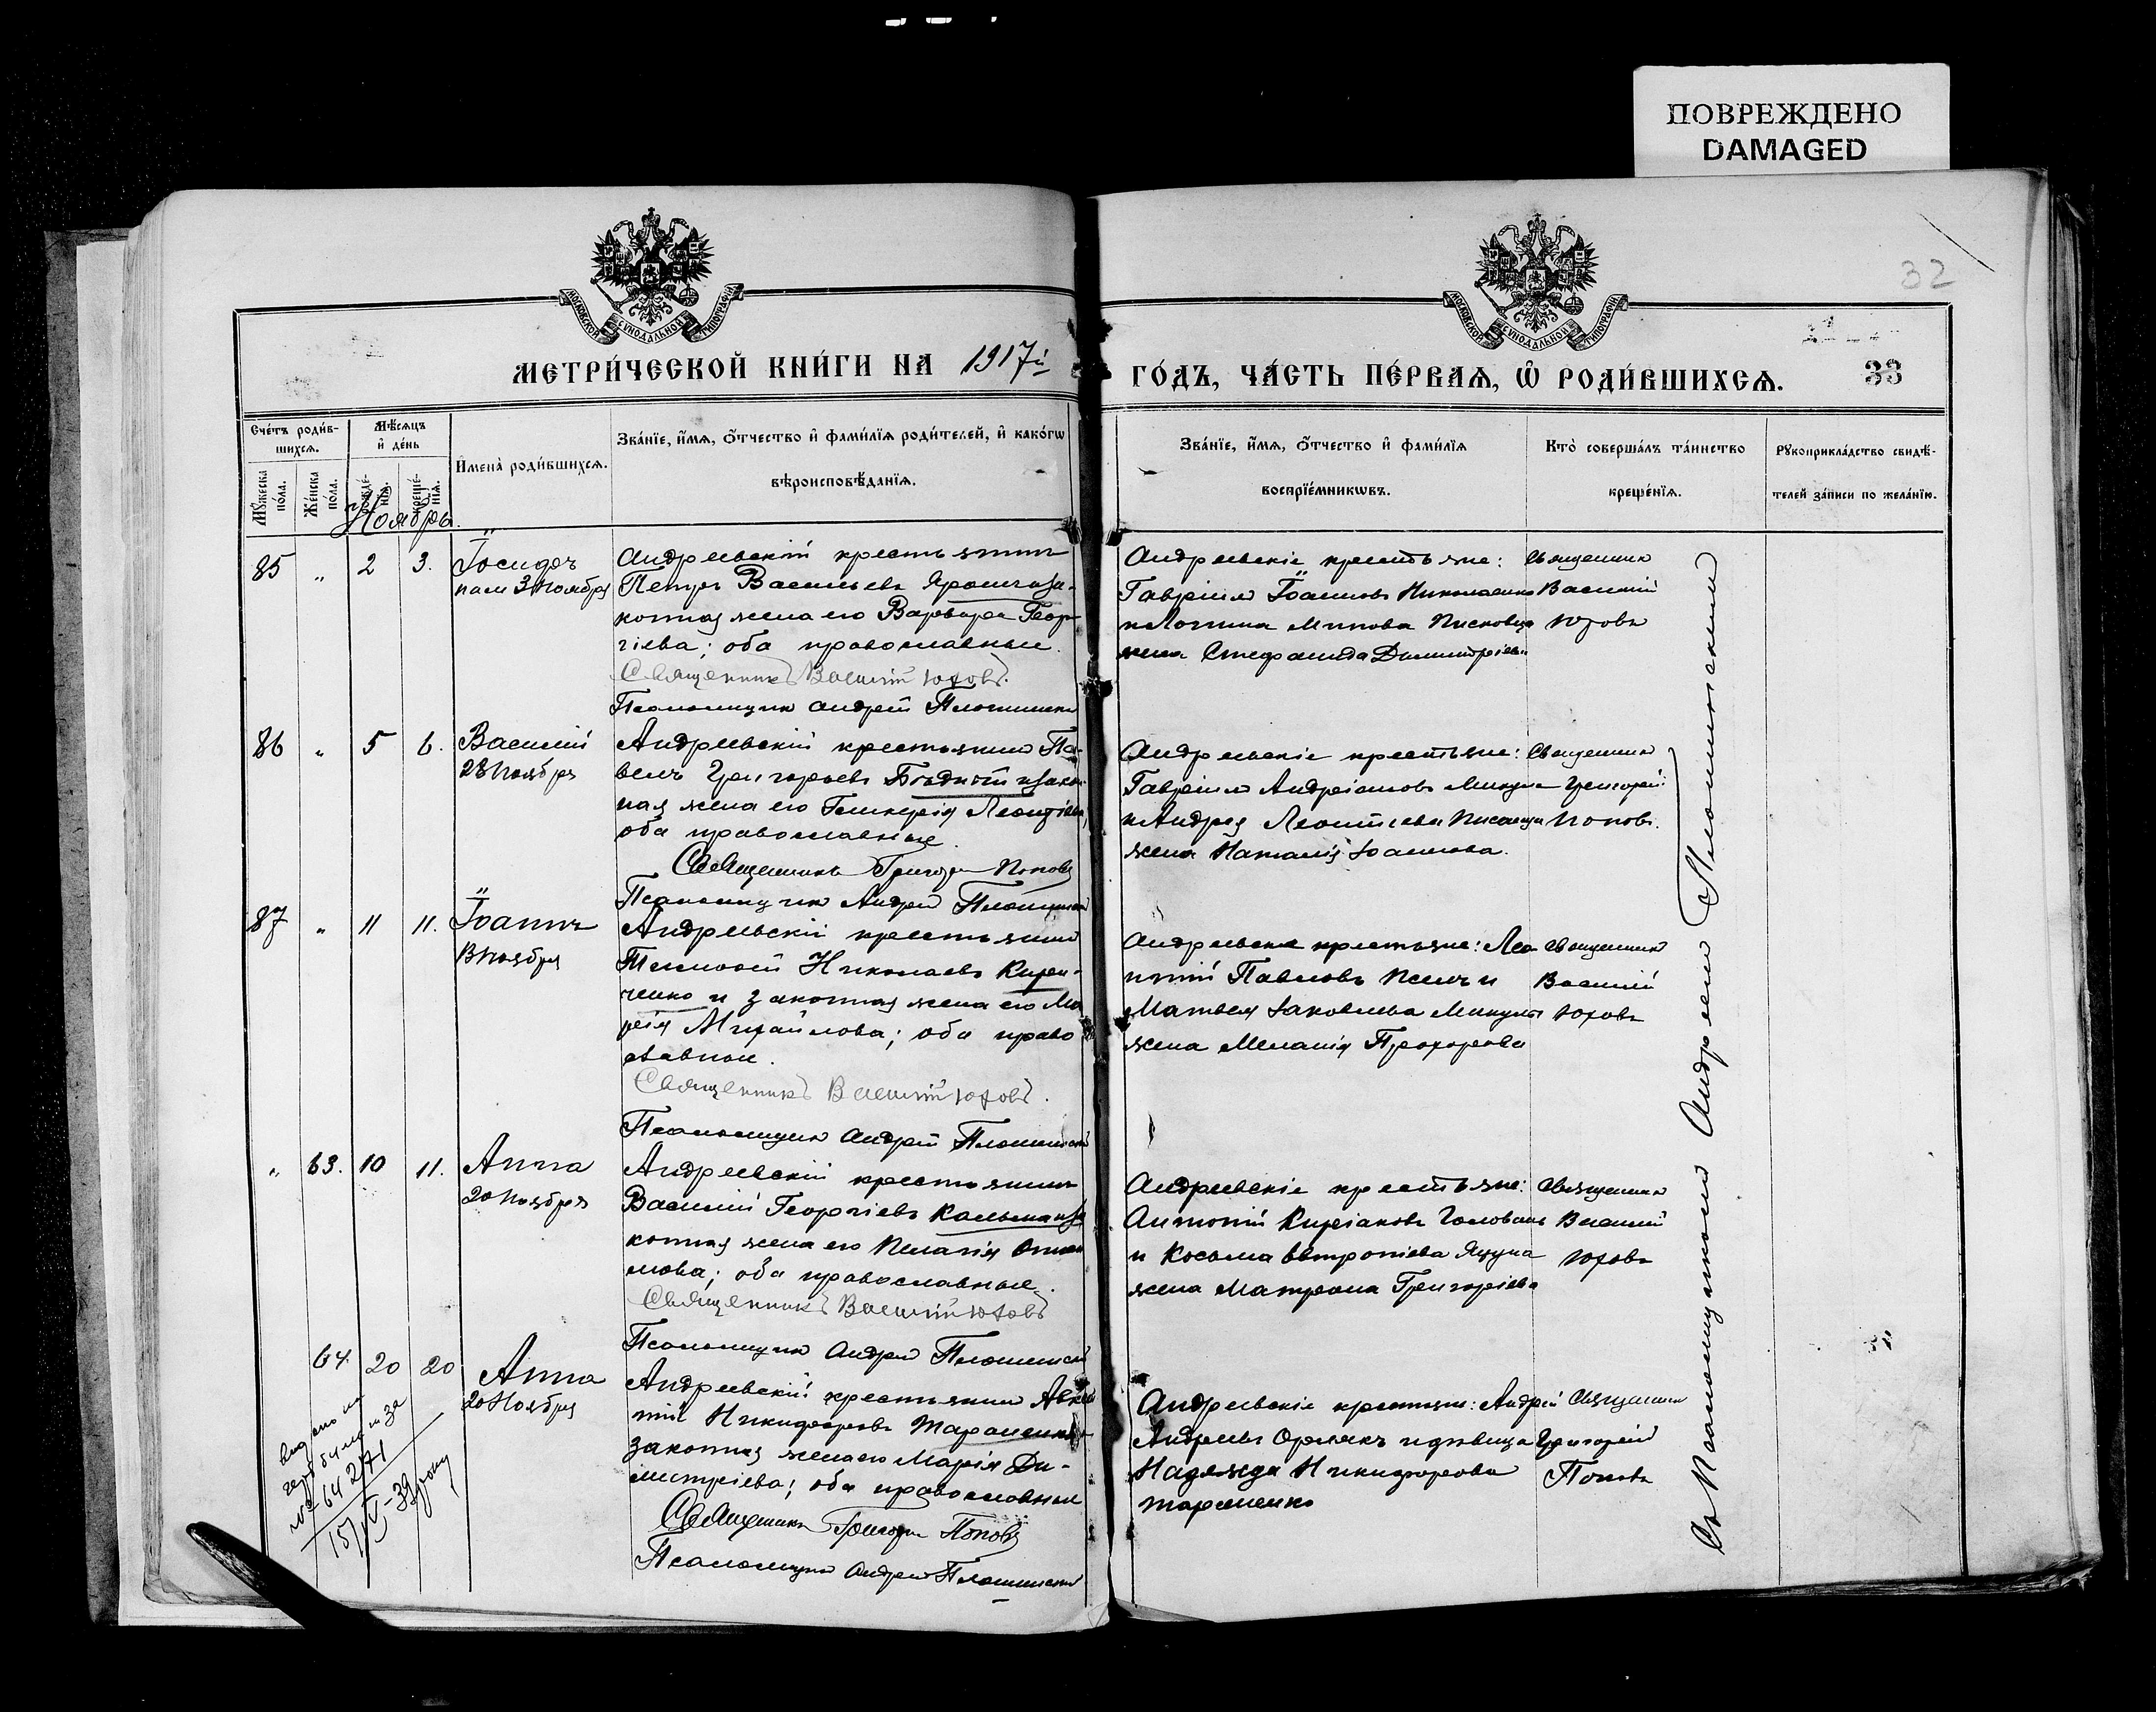 ПОВРЕЖДЕНО
DAMAGED
32
МОСКОВСКОЙ СѴНОДАЛЬНОЙ ТИПОГРАФІИ
МОСКОВСКОЙ СѴНОДАЛЬНОЙ ТИПОГРАФІИ
МЕТРИ́ЧЕСКОЙ КНИ́ГИ НА 1917й ГО́ДЪ, ЧА́СТЬ ПЕ́РВАЯ, Ѡ РОДИ́ВШИХСЯ. 33
Сче́тъ роди́в-
шихся.
Мѣ́сяцъ
и де́нь
Мꙋ́жеска по́ла.
Же́нска по́ла.
рожде́-нїя.
креще́-нїя.
Имена̀ роди́вшихся.
Зва́нїе, и́мя, о́тчество и фами́лїя роди́телей, и како́гѡ
вѣроисповѣ́данїя.
Зва́нїе, и́мя, о́тчество и фами́лїя
воспрїе́мникѡвъ.
Кто̀ соверша́лъ та́инство
креще́нїя.
Рꙋкоприкла́дство свидѣ́-
телей за́писи по жела́нїю.
Ноябрь.
85 " 2 3.
Іосифъ
пам 3 Ноября
Андреевскій крестьянинъ
Петръ Васильевъ
конная жена его Варвара Геор-
гіева; оба православные.
Священникъ Василій Юховъ.
Псаломщикъ Андрей
Андреевскіе крестьяне:
Гавріилъ Іоанновъ Николаенко
и Логина Минова
жена Стефанида Димитріева
Священникъ
Василій
Юховъ
86 " 5 6.
Василій
28 Ноября
Андреевскій крестьянинъ Па-
велъ Григорьевъ Бѣдной и закон-
ная жена его Гликерія Леонтіева,
оба православные.
Священникъ Григорій Поповъ
Псаломщикъ Андрей
Андреевскіе крестьяне:
Гавріилъ Андріановъ Микула
и Андрея Леонтіева
жена Наталія Іоаннова.
Священникъ
Григорій
Поповъ.
87 " 11 11.
Іоаннъ
Ноября
Андреевскій крестьянинъ
Тимофей Николаевъ Кири-
ченко и законная жена его Ма-
рія Михайлова; оба право
славные.
Священникъ Василій Юховъ.
Псаломщикъ Андрей
Андреевскіе крестьяне: Лео
нтій Павловъ и
Матвея Іаковлева Микулы
жена Меланія Прохорова
Священникъ
Василій
Юховъ
" 63. 10 11.
Анна
20 Ноября
Андреевскій крестьянинъ
Василій Георгіевъ
конная жена его Пелагія
мова; оба православные.
Священникъ Василій Юховъ
Псаломщикъ Андрей
Андреевскіе крестьяне:
Антоній Киріаковъ Головань
и Косьма Евтропіева Яцуна
жена Матрона Григоріева
Священникъ
Василій
Юховъ
64. 20 20
Анна
20 Ноября
Андреевскій крестьянинъ
Никифоровъ Тараненко
законная жена его Марія Ди-
митріева; оба православные
Священникъ Григорій Поповъ
Псаломщикъ Андрей
Андреевскіе крестьяне: Андрей
Андреевъ и дѣвица
Надежда Никифорова
Тараненко
Священникъ
Григорій
Поповъ
Съ Псаломщикомъ Андреемъ